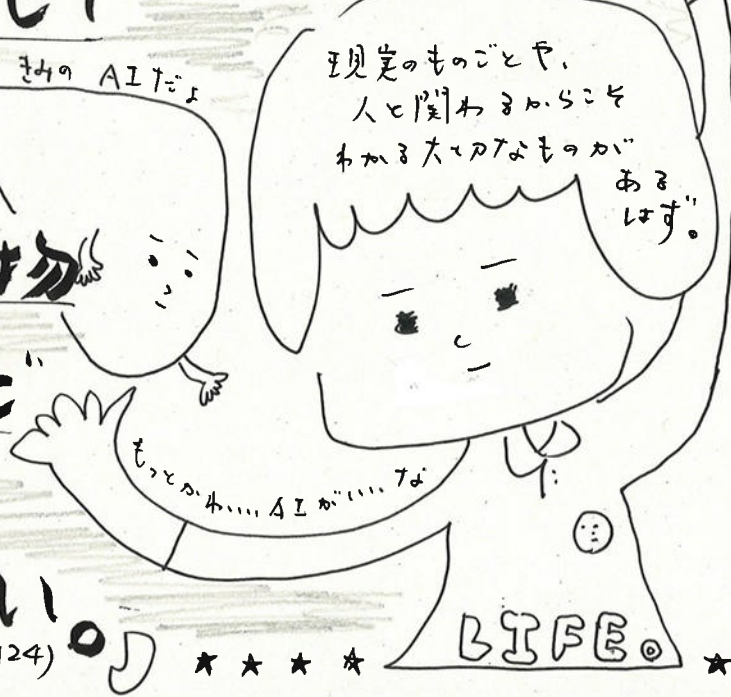 きみの AIだよ
現実のものごとや、
人と関わるからこそ
わかる大切なものが
ある
はず。
物
もっとかわいいAIがいいな
い。
124)
LIFE。